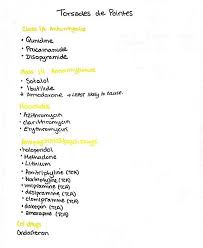 Torsades de Pointes
Class IA Antiarrhythmics
• Quinidine
• Procainamide
• Disopyramide
Class III Antiarrhythmics
• Sotalol
• Ibutilide
• Amiodarone → Least likely to cause.
Macrolides
• Azithromycin
• clarithromycin
• Erythromycin
• haloperidol
• Methadone
• Lithium
• Amitriptyline (TCA)
• Nortriptyline (TCA)
• imipramine (TCA)
• desipramine (TCA)
• clomipramine (TCA)
• doxepin (TCA)
• amoxapine (TCA)
GI drugs
Ondansetron